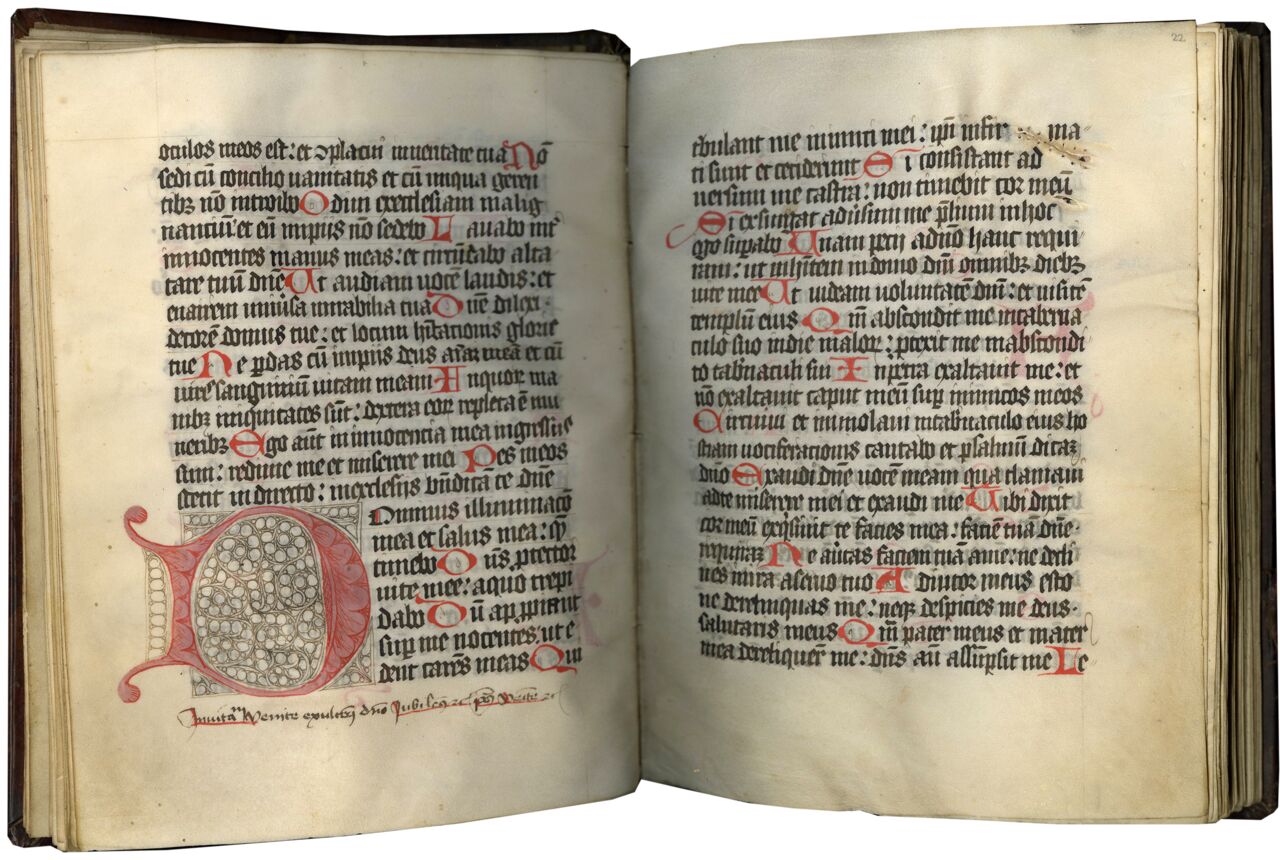 oculos meos est: et ꝯplacui inueritate tua Nō
sedi cū concilio uanitatis et cū iniqua geren
tibꝫ nō introibo Odiui execclesiam malig
nanciū et cū impiis nō sedebo Lauabo int᷑
innocentes manus meas: et circūdabo alta
tare tuū dn̄e Ut audiam uocē laudis: et
enarrem uniu͛sa mirabilia tua Dn̄e dilexi
decorē domus tue: et locum hītacionis glorie
tue Ne ꝑdas cū impiis deus aīaꝫ meā et cū
uiris sanguinum uitam meam In quoꝝ ma
nibꝫ iniquitates sūt: dextera eoꝝ repleta ē mu
neribꝫ Ego aūt in innocencia mea ingressus
sum: redime me et miserere mei Pes meus
stetit in directo: inecclesiis bn̄dicā te dn̄e
Dominus illuminacō
mea et salus mea: qᷤ
timebo Dn̄s ꝓtector
uite mee: aquo trepi
dabo Dū apꝓpiant
suꝑ me nocentes: ut e
dent carēs meas Qui
Inuitaᵐ Venite exultemꝰ dn̄o Jubilemꝰ ps̄ Venite
22
tribulant me inimici mei: ip̄i infir ma
ti sunt et ceciderunt Si consistant ad
uersum me castra: non timebit cor meū
Si exsurgat adu͛sum me p̄lium inhoc
ego sꝑabo Unam pecii adn̄o hanc requi
ram: ut inhītem indomo dn̄i omnibꝫ diebꝫ
uite mee Ut uideam uoluntatē dn̄i: et uisitē
templū eius Qm̄ abscondit me intaberna
culo suo indie maloꝝ: ꝓtexit me inabscondi
to tab͛naculi sui In petra exaltauit me: et
nc̄ exaltauit caput meū suꝑ inimicos meos
Circuiui et immolaui intab͛naculo eius ho
stiam uociferacionis cantabo et psalmū dicaꝫ
dn̄o Exaudi dn̄e uocē meam qua clamaui
adte miserere mei et exaudi me Tibi dixit
cor meū exq̇siuit te facies mea: faciē tuā dn̄e
requiraꝫ Ne au͛tas faciem tuā ame: ne decli
nes inira aseruo tuo Adiutor meus esto
ne derelinquas me: neqꝫ despicies me deus
salutaris meus Qm̄ pater meus et mater
mea dereliquert̄ me: dn̄s aūt assūpsit me Le